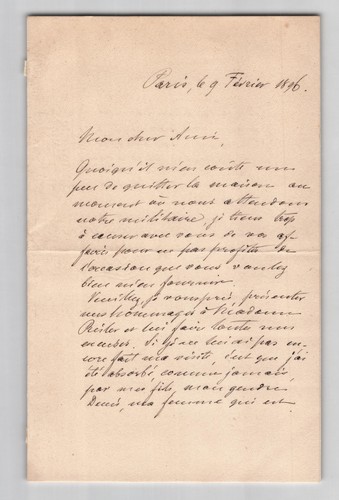 Paris, le 9 Février 1896.
Mon cher Ami,
Quoiqu'il m'en coûte un
peu de quitter la maison au
moment où nous attendons
notre militaire, je tiens trop
à causer avec vous de vos af
faires pour ne pas profiter de
l'occasion que vous voulez
bien m'en fournir.
Veuillez, je vous prie, présenter
mes hommages à Madame
et lui faire toutes mes
Si je ne lui ai pas en
core fait ma visite, c'est que j'ai
été absorbé, comme jamais
par mon fils, mon gendre
Denis, ma femme qui est